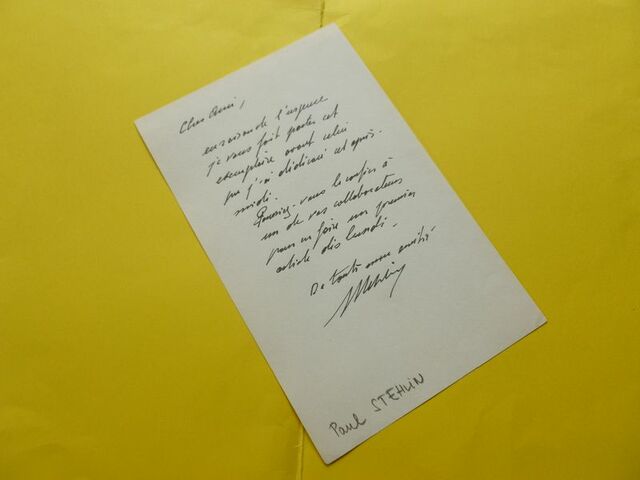 Cher Ami,
en raison de l'urgence
je vous fait porter cet
exemplaire avant celui
que j'ai dédicacé cet après-
midi.
Pouviez-vous le confier à
un de vos collaborateurs
pour en faire un premier
article dès lundi.
De toute mon amitié
Stehlin
Paul STEHLIN